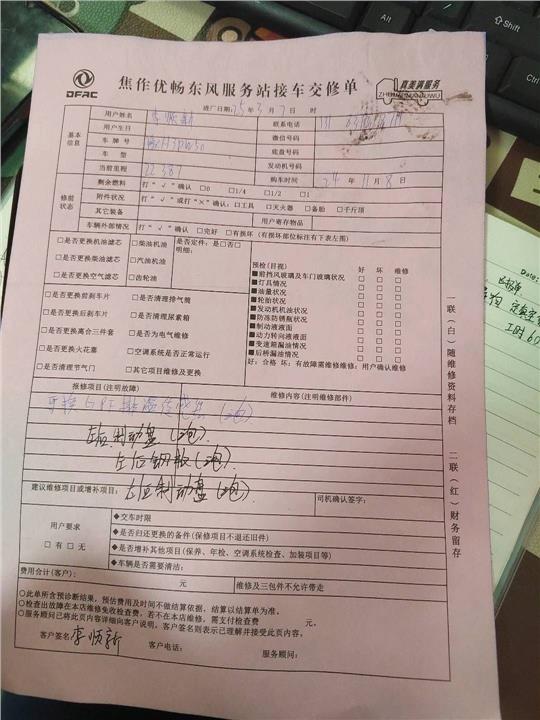 DFAC
焦作优畅东风服务站接车交修单
真美满服务
进厂日期: 25年3月7日 时
基本信息
用户姓名 李顺新 联系电话
用户生日 微信号码
车牌号 底盘号码
车型 发动机号码
当前里程 购车时间 24年11月8日
修前状态
剩余燃料 打“√”确认 □0 □1/4 □1/2 □1
附件状况 打“√”或打“×”确认: □工具 □灭火器 □备胎 □千斤顶
其它装备 用户寄存物品
车辆外部情况 打“√”确认 □完好 □有损坏(有损坏部位标注有下表左图)
□是否更换机油滤芯 □柴油机油 是否定件: 是□否□
□是否更换柴油滤芯 □汽油机油 明细:
□是否更换空气滤芯 □齿轮油
□是否更换前刹车片 □是否清理排气筒
□是否更换后刹车片 □是否清理尿素箱
□是否更换离合三件套 □是否为电气维修
□是否更换火花塞 □空调系统是否正常运行
□是否清理节气门 □其它项目维修及更换
预检(目视) 好 坏 维修
■前挡风玻璃及车门玻璃状况 □ □ □
■灯具情况 □ □ □
■油量状况 □ □ □
■轮胎状况 □ □ □
■发动机机油状况 □ □ □
■防冻防锈瓶状况 □ □ □
■制动液液面 □ □ □
■动力转向液液面 □ □ □
■变速箱漏油情况 □ □ □
■后桥漏油情况 □ □ □
好: 合格 坏: 有故障需维修维修: 用户确认维修
报修项目(注明故障) 维修内容(注明维修部件)
左后制动盘(2包).
左后钢板(2包).
建议维修项目或增补项目: 右后制动盘(2包) 司机确认签字:
用户要求
□有 □无
◆交车时限
◆是否归还更换的备件(保修项目不退还旧件)
◆是否增补其他项目(保养、年检、空调系统检查、加装项目等)
◆车辆是否需要清洁:
费用合计(客户): 元 维修及三包件不允许带走
○此单所含预诊断结果, 预估费用及时间不做结算依据, 结算以结算单为准。
○检查出故障在本店维修免收检查费, 若不在本店维修, 需支付检查费 元。
○服务顾问已将此页内容详细向客户说明, 客户签名则表示已理解并接受此页内容。
客户签名: 李顺新 客户电话: 服务顾问:
一联(白)随维修资料存档 二联(红)财务留存
Date: